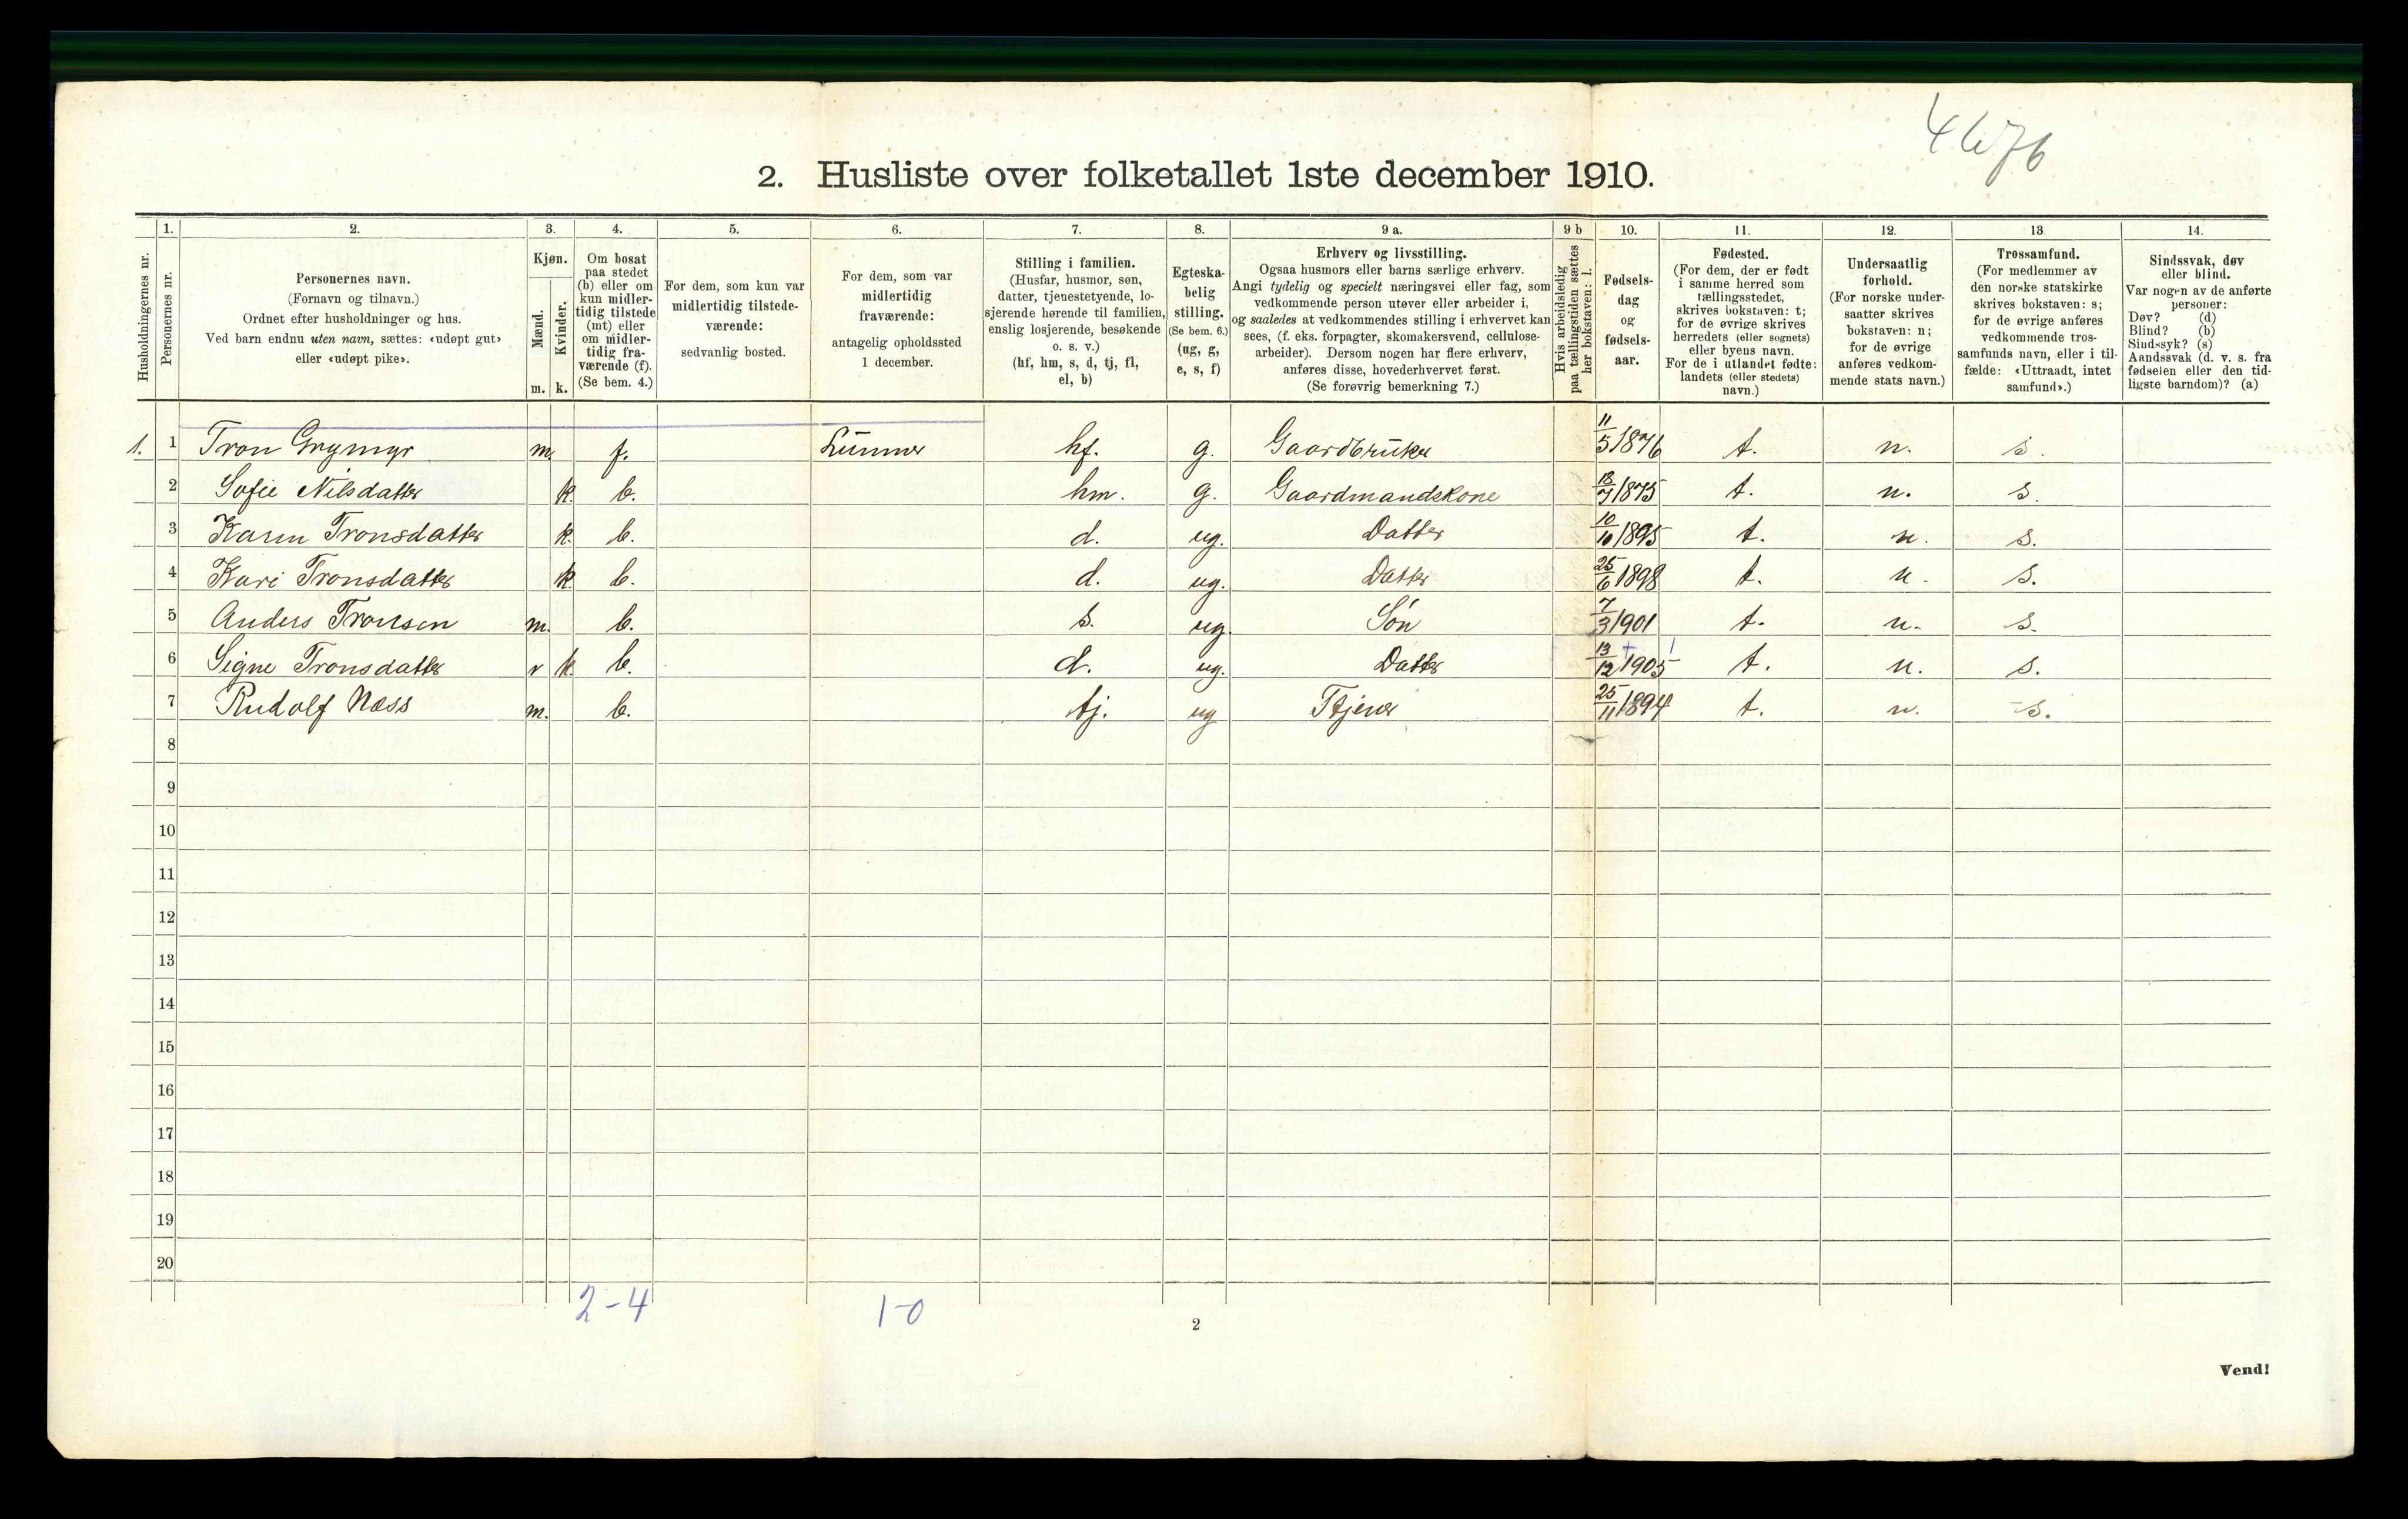 4676
2. Husliste over folketallet 1ste december 1910.
Husholdningernes nr.
1.
Personernes nr.
2.
Personernes navn.
(Fornavn og tilnavn.)
Ordnet efter husholdninger og hus.
Ved barn endnu uten navn, sættes: «udøpt gut»
eller «udøpt pike».
3.
Kjøn.
Mænd.
m.
Kvinder.
k.
4.
Om bosat
paa stedet
(b) eller om
kun midler-
tidig tilstede
(mt) eller
om midler-
tidig fra-
værende (f).
(Se bem. 4.)
5.
For dem, som kun var
midlertidig tilstede-
værende:
sedvanlig bosted.
6.
For dem, som var
midlertidig
fraværende:
antagelig opholdssted
1 december.
7.
Stilling i familien.
(Husfar, husmor, søn,
datter, tjenestetyende, lo-
sjerende hørende til familien,
enslig losjerende, besøkende
o. s. v.)
(hf, hm, s, d, tj, fl,
el, b)
8.
Egteska-
belig
stilling.
(Se bem. 6.)
(ug, g,
e, s, f)
9 a.
Erhverv og livsstilling.
Ogsaa husmors eller barns særlige erhverv.
Angi tydelig og specielt næringsvei eller fag, som
vedkommende person utøver eller arbeider i,
og saaledes at vedkommendes stilling i erhvervet kan
sees, (f. eks. forpagter, skomakersvend, cellulose-
arbeider). Dersom nogen har flere erhverv,
anføres disse, hovederhvervet først.
(Se forøvrig bemerkning 7.)
9 b
Hvis arbeidsledig
paa tællingstiden sættes
her bokstaven: l.
10.
Fødsels-
dag
og
fødsels-
aar.
11.
Fødested.
(For dem, der er født
i samme herred som
tællingsstedet,
skrives bokstaven: t;
for de øvrige skrives
herredets (eller sognets)
eller byens navn.
For de i utlandet fødte:
landets (eller stedets)
navn.)
12.
Undersaatlig
forhold.
(For norske under-
saatter skrives
bokstaven: n;
for de øvrige
anføres vedkom-
mende stats navn.)
13
Trossamfund.
(For medlemmer av
den norske statskirke
skrives bokstaven: s;
for de øvrige anføres
vedkommende tros-
samfunds navn, eller i til-
fælde: «Uttraadt, intet
samfund».)
14.
Sindssvak, døv
eller blind.
Var nogen av de anførte
personer:
Døv? (d)
Blind? (b)
Sindssyk? (s)
Aandssvak (d. v. s. fra
fødselen eller den tid-
ligste barndom)? (a)
1. 1 Tron Grymyr m. f. Lunner hf. g. Gaardbruker 11/5 1876 t. n. s.
2 Sofie Nilsdatter k. b. hm. g. Gaardmandskone 13/7 1875 t. n. s.
3 Karen Tronsdatter k. b. d. ug. Datter 10/10 1895 t. n. s.
4 Kari Tronsdatter k. b. d. ug. Datter 25/6 1898 t. n. s.
5 Anders Tronsen m. b. s. ug. Søn 7/3 1901 t. n. s.
6 Signe Tronsdatter k. b. d. ug. Datter 13/12 1905 t. n. s.
7 Rudolf Næss m. b. tj. ug Tjener 25/11 1894 t. n. s.
8
9
10
11
12
13
14
15
16
17
18
19
20
2-4 1-0
2
Vend!